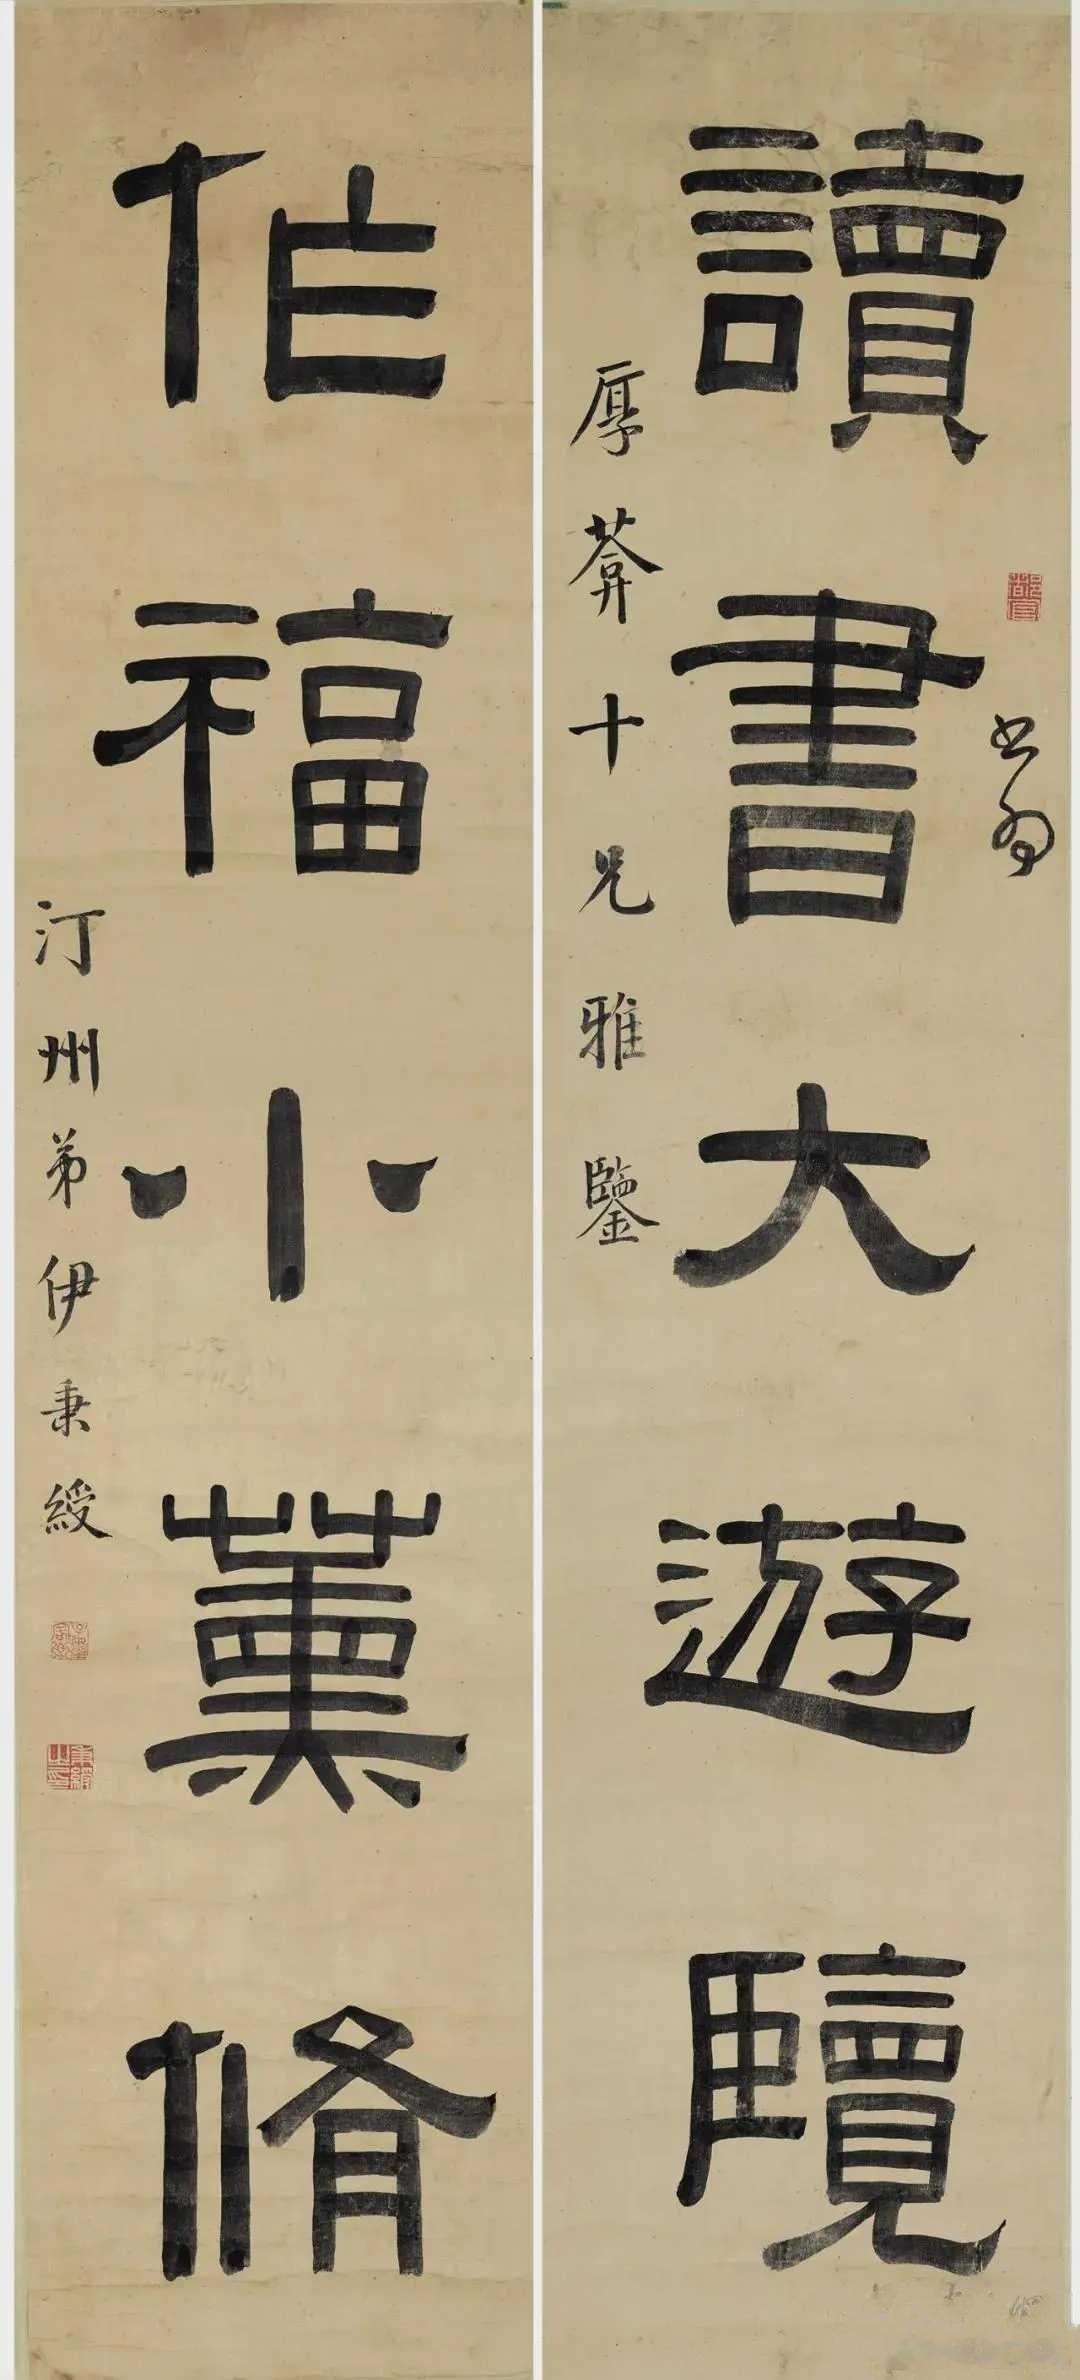 讀書大遊覽
厚菴十兄雅鑒
作福小薰脩
汀州弟伊秉綬